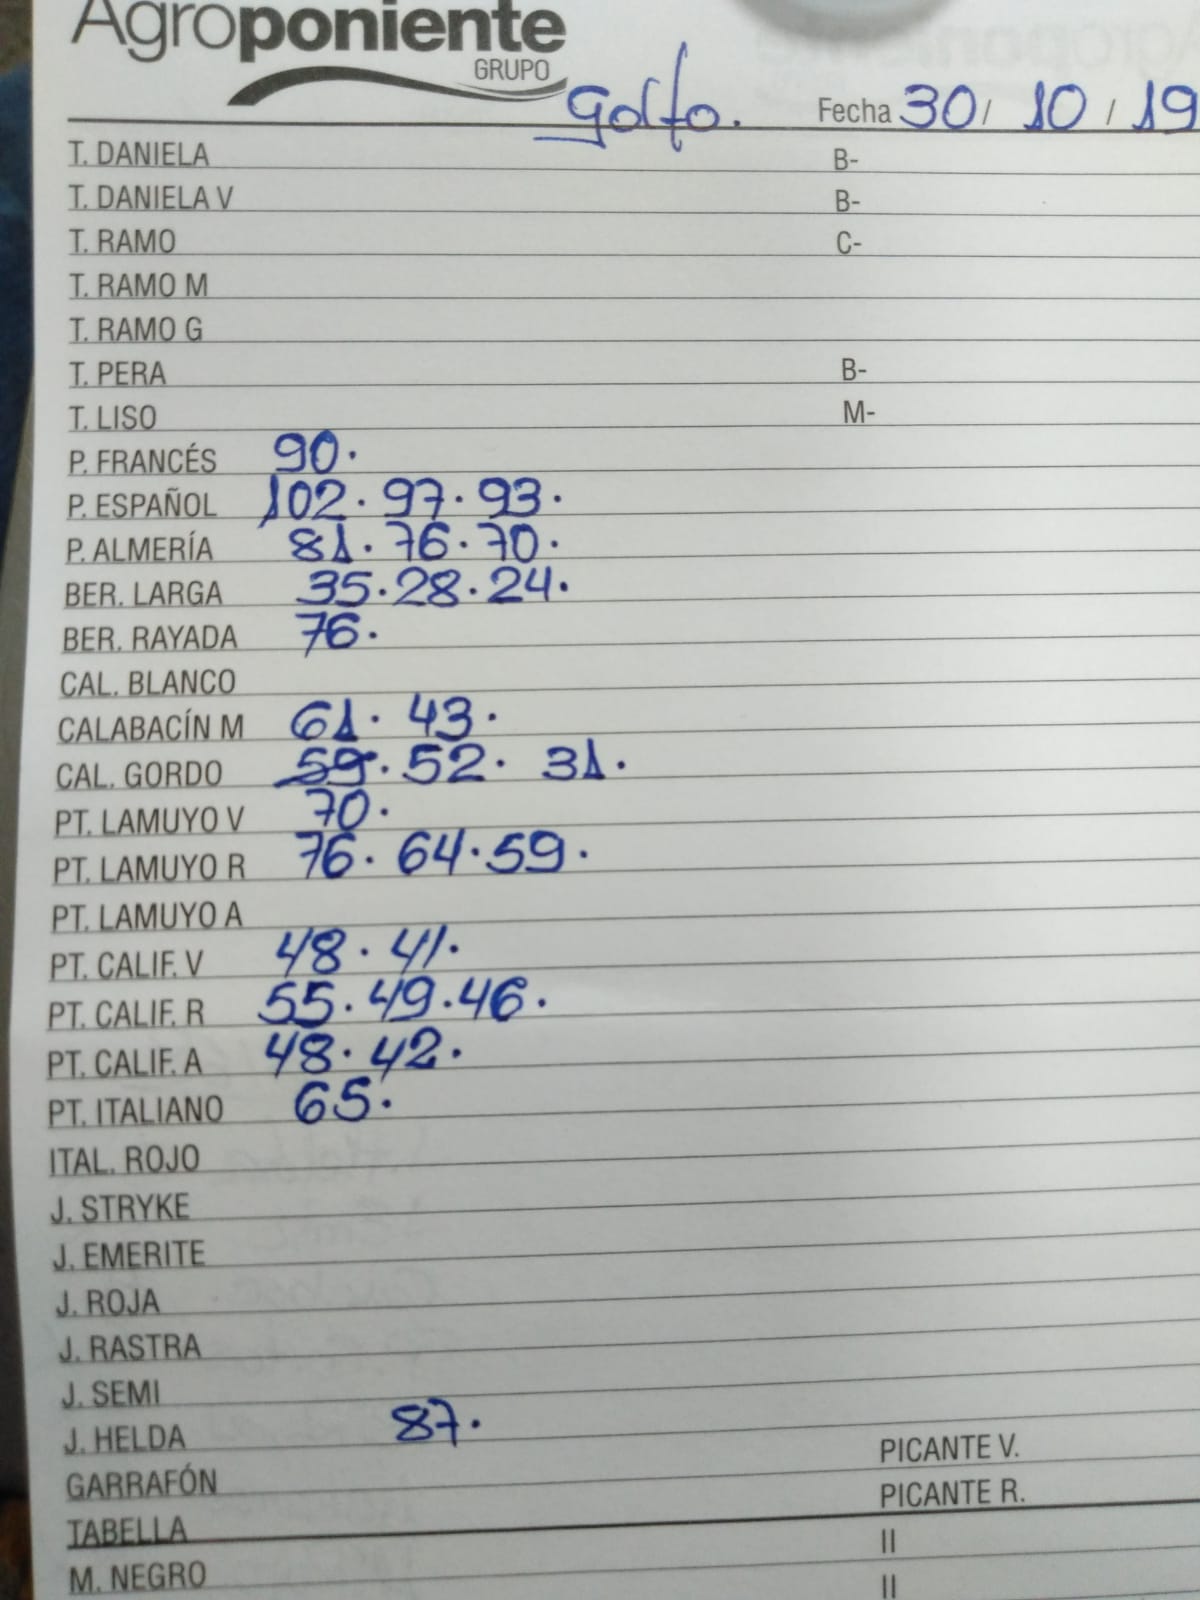 Agroponiente
GRUPO
Golfo. Fecha 30/ 10 / 19
T. DANIELA B-
T. DANIELA V B-
T. RAMO C-
T. RAMO M
T. RAMO G
T. PERA B-
T. LISO M-
P. FRANCÉS 90.
P. ESPAÑOL 102. 97. 93.
P. ALMERÍA 81. 76. 70.
BER. LARGA 35. 28. 24.
BER. RAYADA 76.
CAL. BLANCO
CALABACÍN M 61. 43.
CAL. GORDO 59. 52. 31.
PT. LAMUYO V 70.
PT. LAMUYO R 76. 64. 59.
PT. LAMUYO A
PT. CALIF. V 48. 41.
PT. CALIF. R 55. 49. 46.
PT. CALIF. A 48. 42.
PT. ITALIANO 65.
ITAL. ROJO
J. STRYKE
J. EMERITE
J. ROJA
J. RASTRA
J. SEMI
J. HELDA 87.
GARRAFÓN PICANTE V.
TABELLA PICANTE R.
M. NEGRO II
II